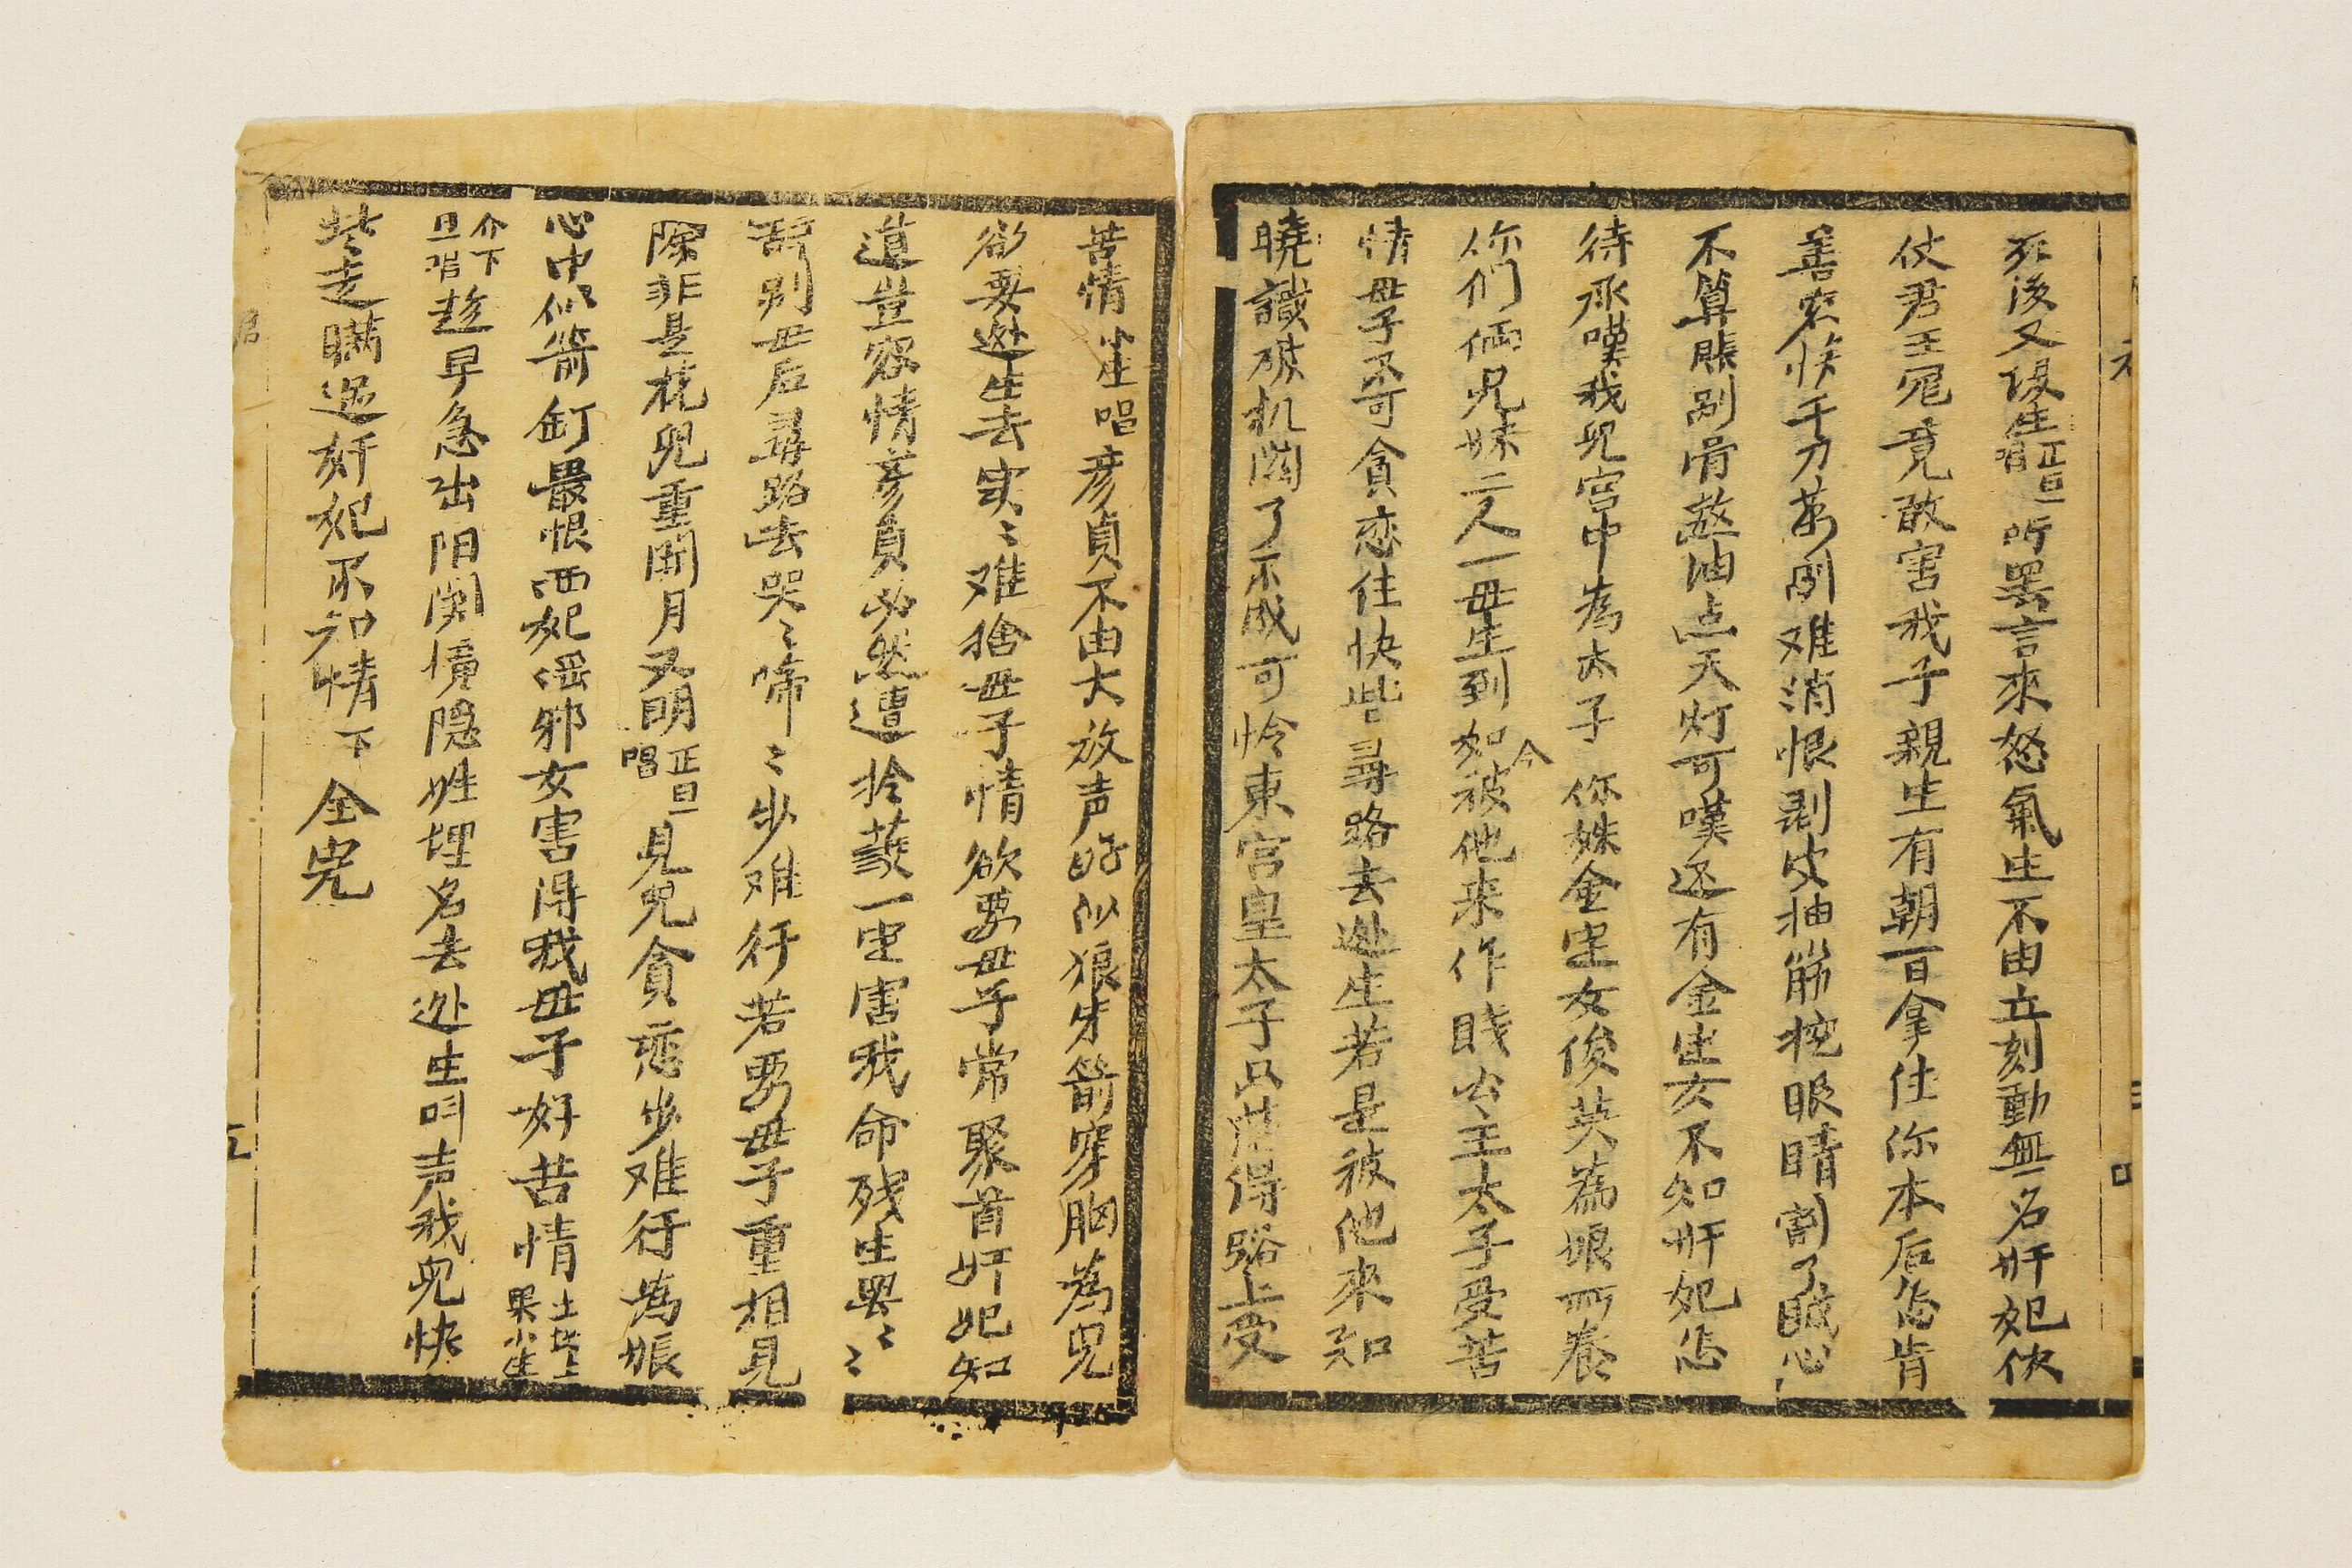 死後又復生正旦唱听罢言來怒氣生不由立刻動無名奸妃伏
仗君王寵竟敢害我子親生有朝一日拿住你本后怎肯
善容恕千刀萬剐难消恨剥皮抽筋挖眼睛割了賊心
不算賬剐骨熬油点天灯可嘆还有金定女不知奸妃怎
待承嘆我児宮中為太子你妹金定女俊英為娘所養
你們俩兄妹二人一母生到如今被他来作賤公主太子受苦
情母子不可貪恋住快些尋路去逃生若是被他來知
曉識破机関了不成可怜東宮皇太子只落得路上受
苦情小生唱彦貞不由大放声好似狼牙箭穿胸為児
欲要逃生去実〻难捨母子情欲要母子常聚首奸妃知
道豈容情彦貞必然遭拴綁一定害我命残生罢〻〻
辞别母后尋路去哭〻啼〻步难行若要母子重相見
除非是花児重開月又明正旦唱見児貪恋步难行為娘
心中似箭釘最恨西妃淫邪女害得我母子好苦情土地上
介下旦唱趁早急出阳関境隐姓埋名去逃生叫声我児快
些走瞒过奸妃不知情下全完